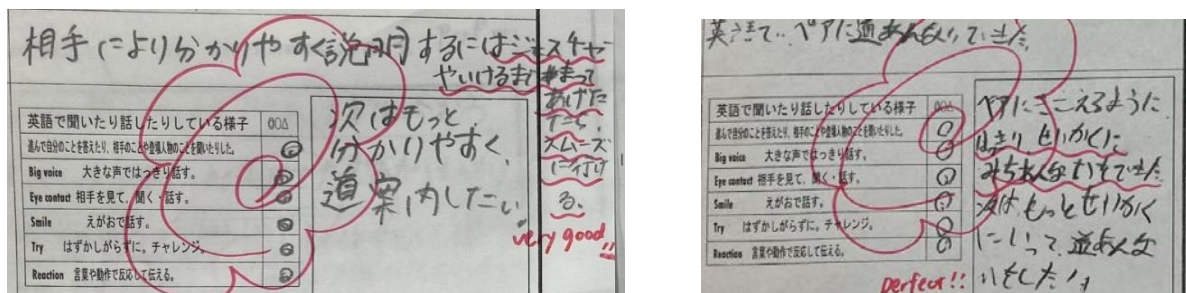 相手により分かりやすく説明するにはジェスチャー
やいけるまで止まって
あげた
たら、
スムーズ
に行け
る。
英語で聞いたり話したりしている様子 ◎○△
進んで自分のことを答えたり、相手のことや登場人物のことを聞いたりした。
Big voice 大きな声ではっきり話す。
Eye contact 相手を見て、聞く・話す。
Smile えがおで話す。
Try はずかしがらずに。チャレンジ。
Reaction 言葉や動作で反応して伝える。
次はもっと
分かりやすく、
道案内したい。
very good!!
英語で、ペアに道あんないできた
英語で聞いたり話したりしている様子 ◎○△
進んで自分のことを答えたり、相手のことや登場人物のことを聞いたりした。
Big voice 大きな声ではっきり話す。
Eye contact 相手を見て、聞く・話す。
Smile えがおで話す。
Try はずかしがらずに。チャレンジ。
Reaction 言葉や動作で反応して伝える。
ペアにきこえるように
はっきりせいかくに
みちあんないができた
次はもっとせいかく
にいって、道あんな
いをしたい。
perfect!!